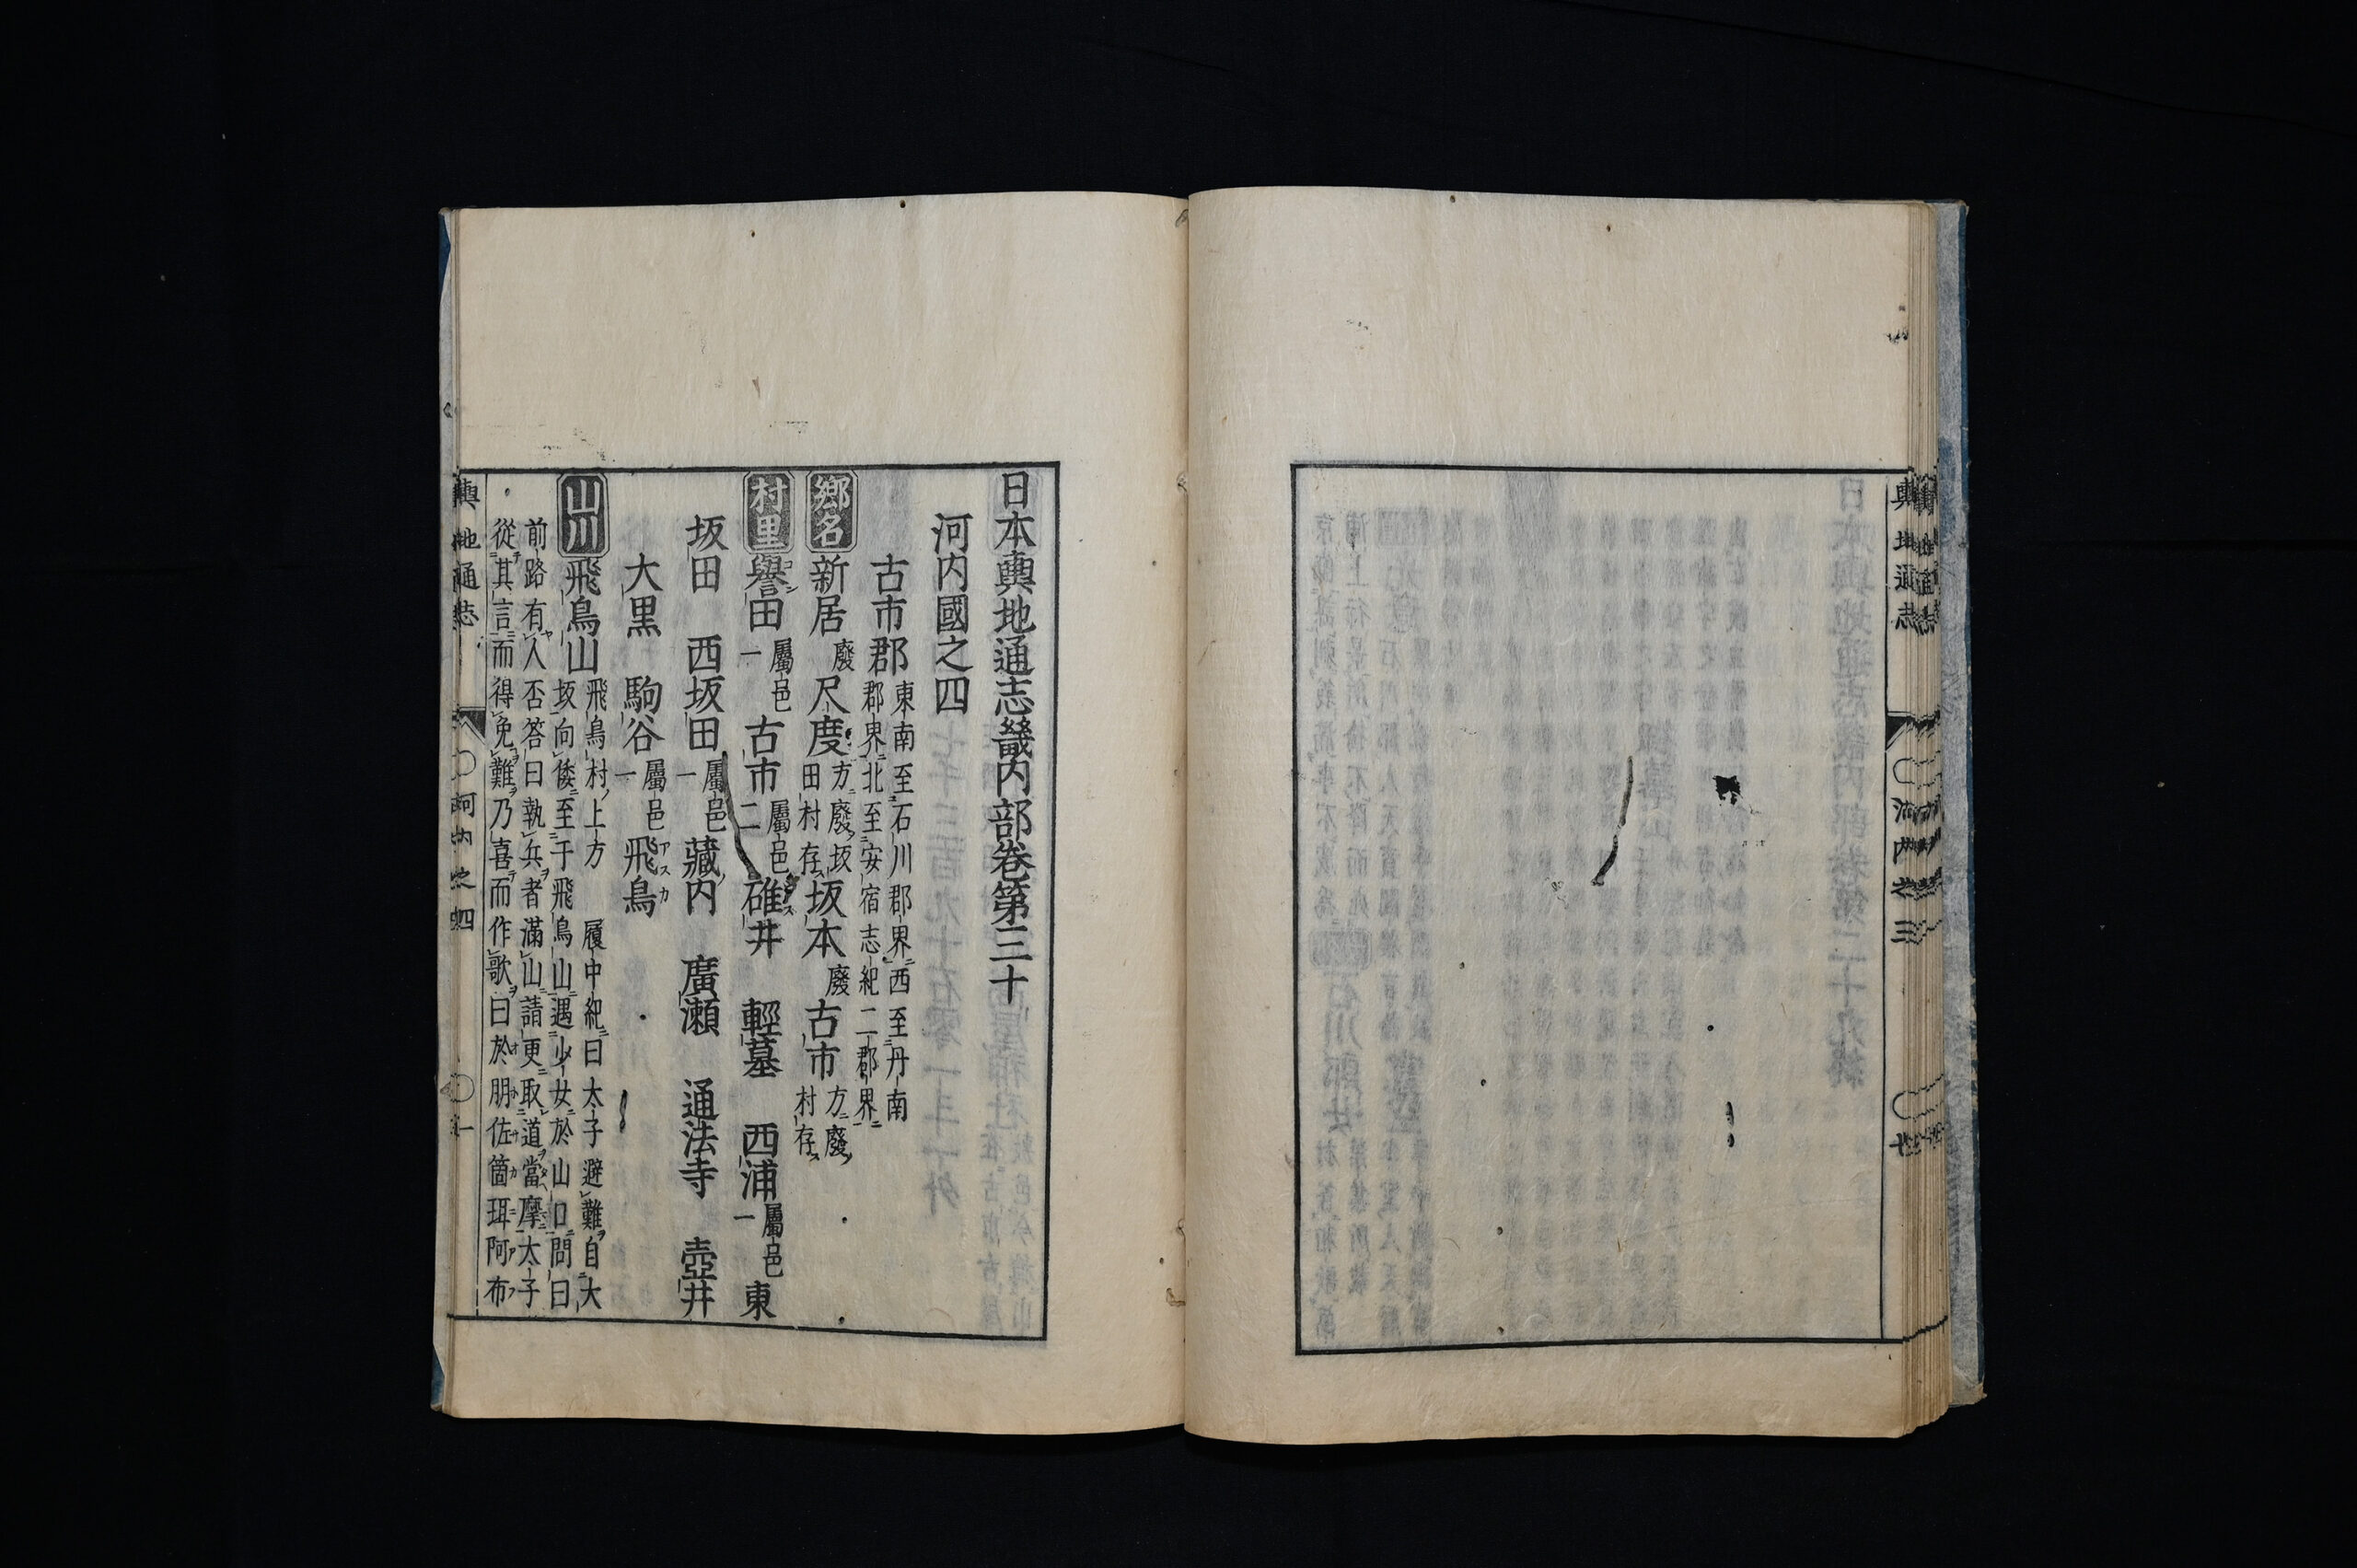 日本輿地通志畿内部卷第三十
河内國之四
古市郡 東南至石川郡界西至丹南
郡界北至安宿志紀二郡界
鄉名 新居 廢 尺度 方廢坂
田村存 坂本 廢 古市 方廢
村存
村里 譽田 屬邑
一 古市 屬邑
二 碓井 輕墓 西浦 屬邑
一 東
坂田 西坂田 屬邑
一 藏内 廣瀬 通法寺 壺井
大黒 駒谷 屬邑
一 飛鳥
山川 飛鳥山 飛鳥村上方 履中紀曰太子避難自大
坂向倭至于飛鳥山遇少女於山口問曰
前路有人否答曰執兵者滿山請更取道當摩太子
從其言而得免難乃喜而作歌曰於朋佐箇珥阿布
輿地通志 河内之四 一
輿地通志 河内之三